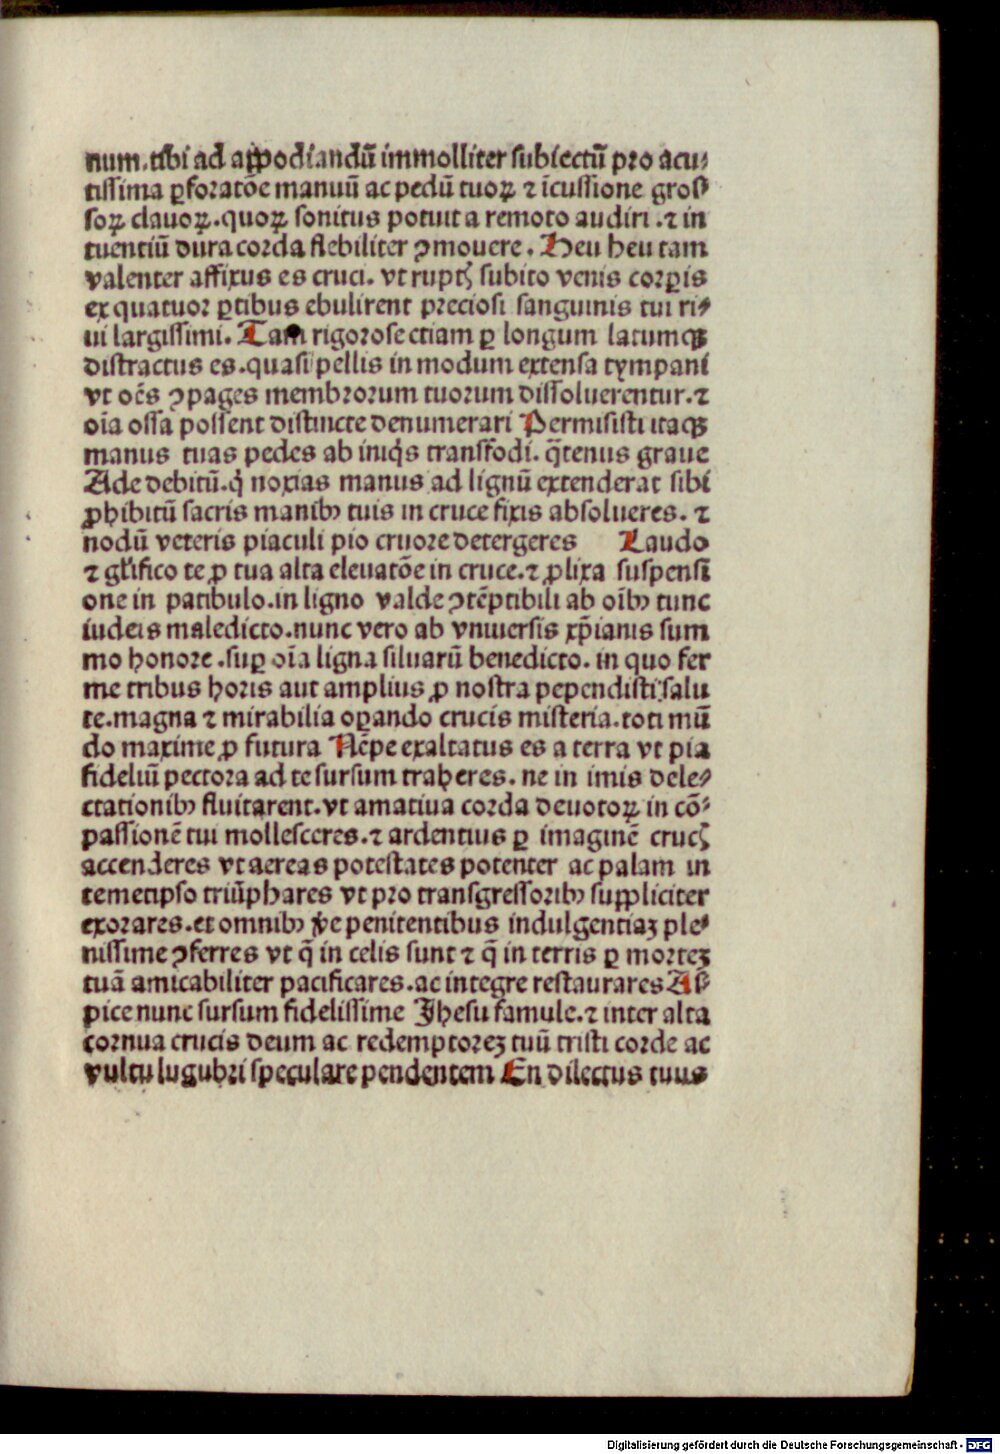 num.tibi ad appodiandū immolliter subiectū pro acu⸗
tissima ꝑforatōe manuū ac pedū tuoꝝ ⁊ īcussione gros
soꝝ clauoꝝ.quoꝝ sonitus potuit a remoto audiri .⁊ in
tuentiū dura corda flebiliter ꝯmouere . Heu heu tam
valenter affixus es cruci. vt ruptꝭ subito venis corꝑis
ex quatuor ꝑtibus ebulirent preciosi sanguinis tui ri⸗
ui largissimi. Tam rigorose etiam ꝑ longum latumqꝫ
distractus es.quasi pellis in modum extensa tympani
vt oēs ꝯpages membrorum tuorum dissoluerentur.⁊
oīa ossa possent distincte denumerari Permisisti itaqꝫ
manus tuas pedes ab iniqͥs transfodi. qͣtenus graue
Ade debitū.qͥ noxias manus ad lignū extenderat sibi
ꝓhibitū sacris manibꝰ tuis in cruce fixis absolueres. ⁊
nodū veteris piaculi pio cruore detergeres Laudo
⁊ gl̄ifico te ꝓ tua alta eleuatōe in cruce.⁊ ꝓlixa suspensi
one in patibulo.in ligno valde ꝯtēptibili ab oībꝰ tunc
iudeis maledicto.nunc vero ab vniuersis xp̄ianis sum
mo honore .suꝑ oīa ligna siluarū benedicto. in quo fer
me tribus horis aut amplius ꝓ nostra pependisti salu
te.magna ⁊ mirabilia oꝑando crucis misteria.toti mū
do maxime ꝓ futura Nēpe exaltatus es a terra vt pia
fideliū pectora ad te sursum traheres. ne in imis dele⸗
ctationibꝰ fluitarent.vt amatiua corda deuotoꝝ in cō⸗
passionē tui mollesceres.⁊ ardentius ꝑ imaginē crucꝭ
accenderes vt aereas potestates potenter ac palam in
temetipso triūphares vt pro transgressoribꝰ supꝑliciter
exorares.et omnibꝰ v̄e penitentibus indulgentiaꝫ ple⸗
nissime ꝯferres vt q̄ in celis sunt ⁊ q̄ in terris ꝑ morteꝫ
tuā amicabiliter pacificares.ac integre restaurares As⸗
pice nunc sursum fidelissime Jhesu famule.⁊ inter alta
cornua crucis deum ac redemptoreꝫ tuū tristi corde ac
vultu lugubri speculare pendentem En dilectus tuus
Digitalisierung gefördert durch die Deutsche Forschungsgemeinschaft - DFG